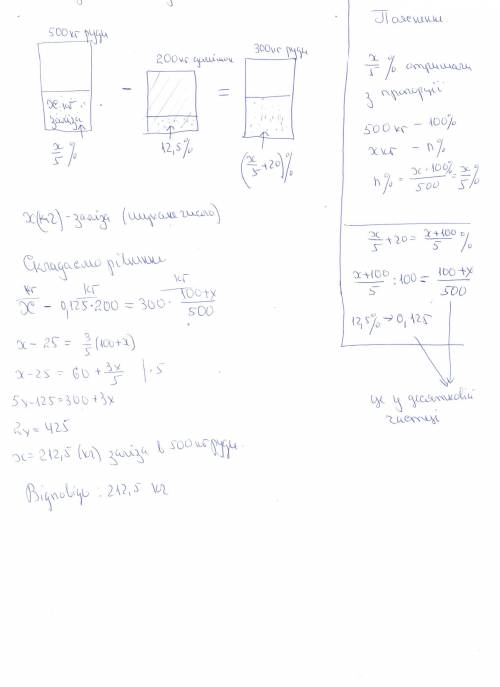 500кг руди
200кг домішок
300кг руди
x кг заліза
–
=
x/5 %
12,5%
(x/5 + 20)%
x(кг) - заліза (шукане число)
Складаємо рівняння
кг кг кг
x - 0,125·200 = 300 · (100+x)/500
x - 25 = 3/5 (100+x)
x - 25 = 60 + 3x/5 | · 5
5x - 125 = 300 + 3x
2x = 425
x = 212,5 (кг) заліза в 500кг руди.
Відповідь : 212,5 кг
Пояснення
x/5 % отримали
з пропорції
500 кг – 100%
x кг – n%
n% = x·100%/500 = x/5 %
x/5 + 20 = (x+100)/5 %
(x+100)/5 : 100 = (100+x)/500
12,5% → 0,125
це у десятковій
частці